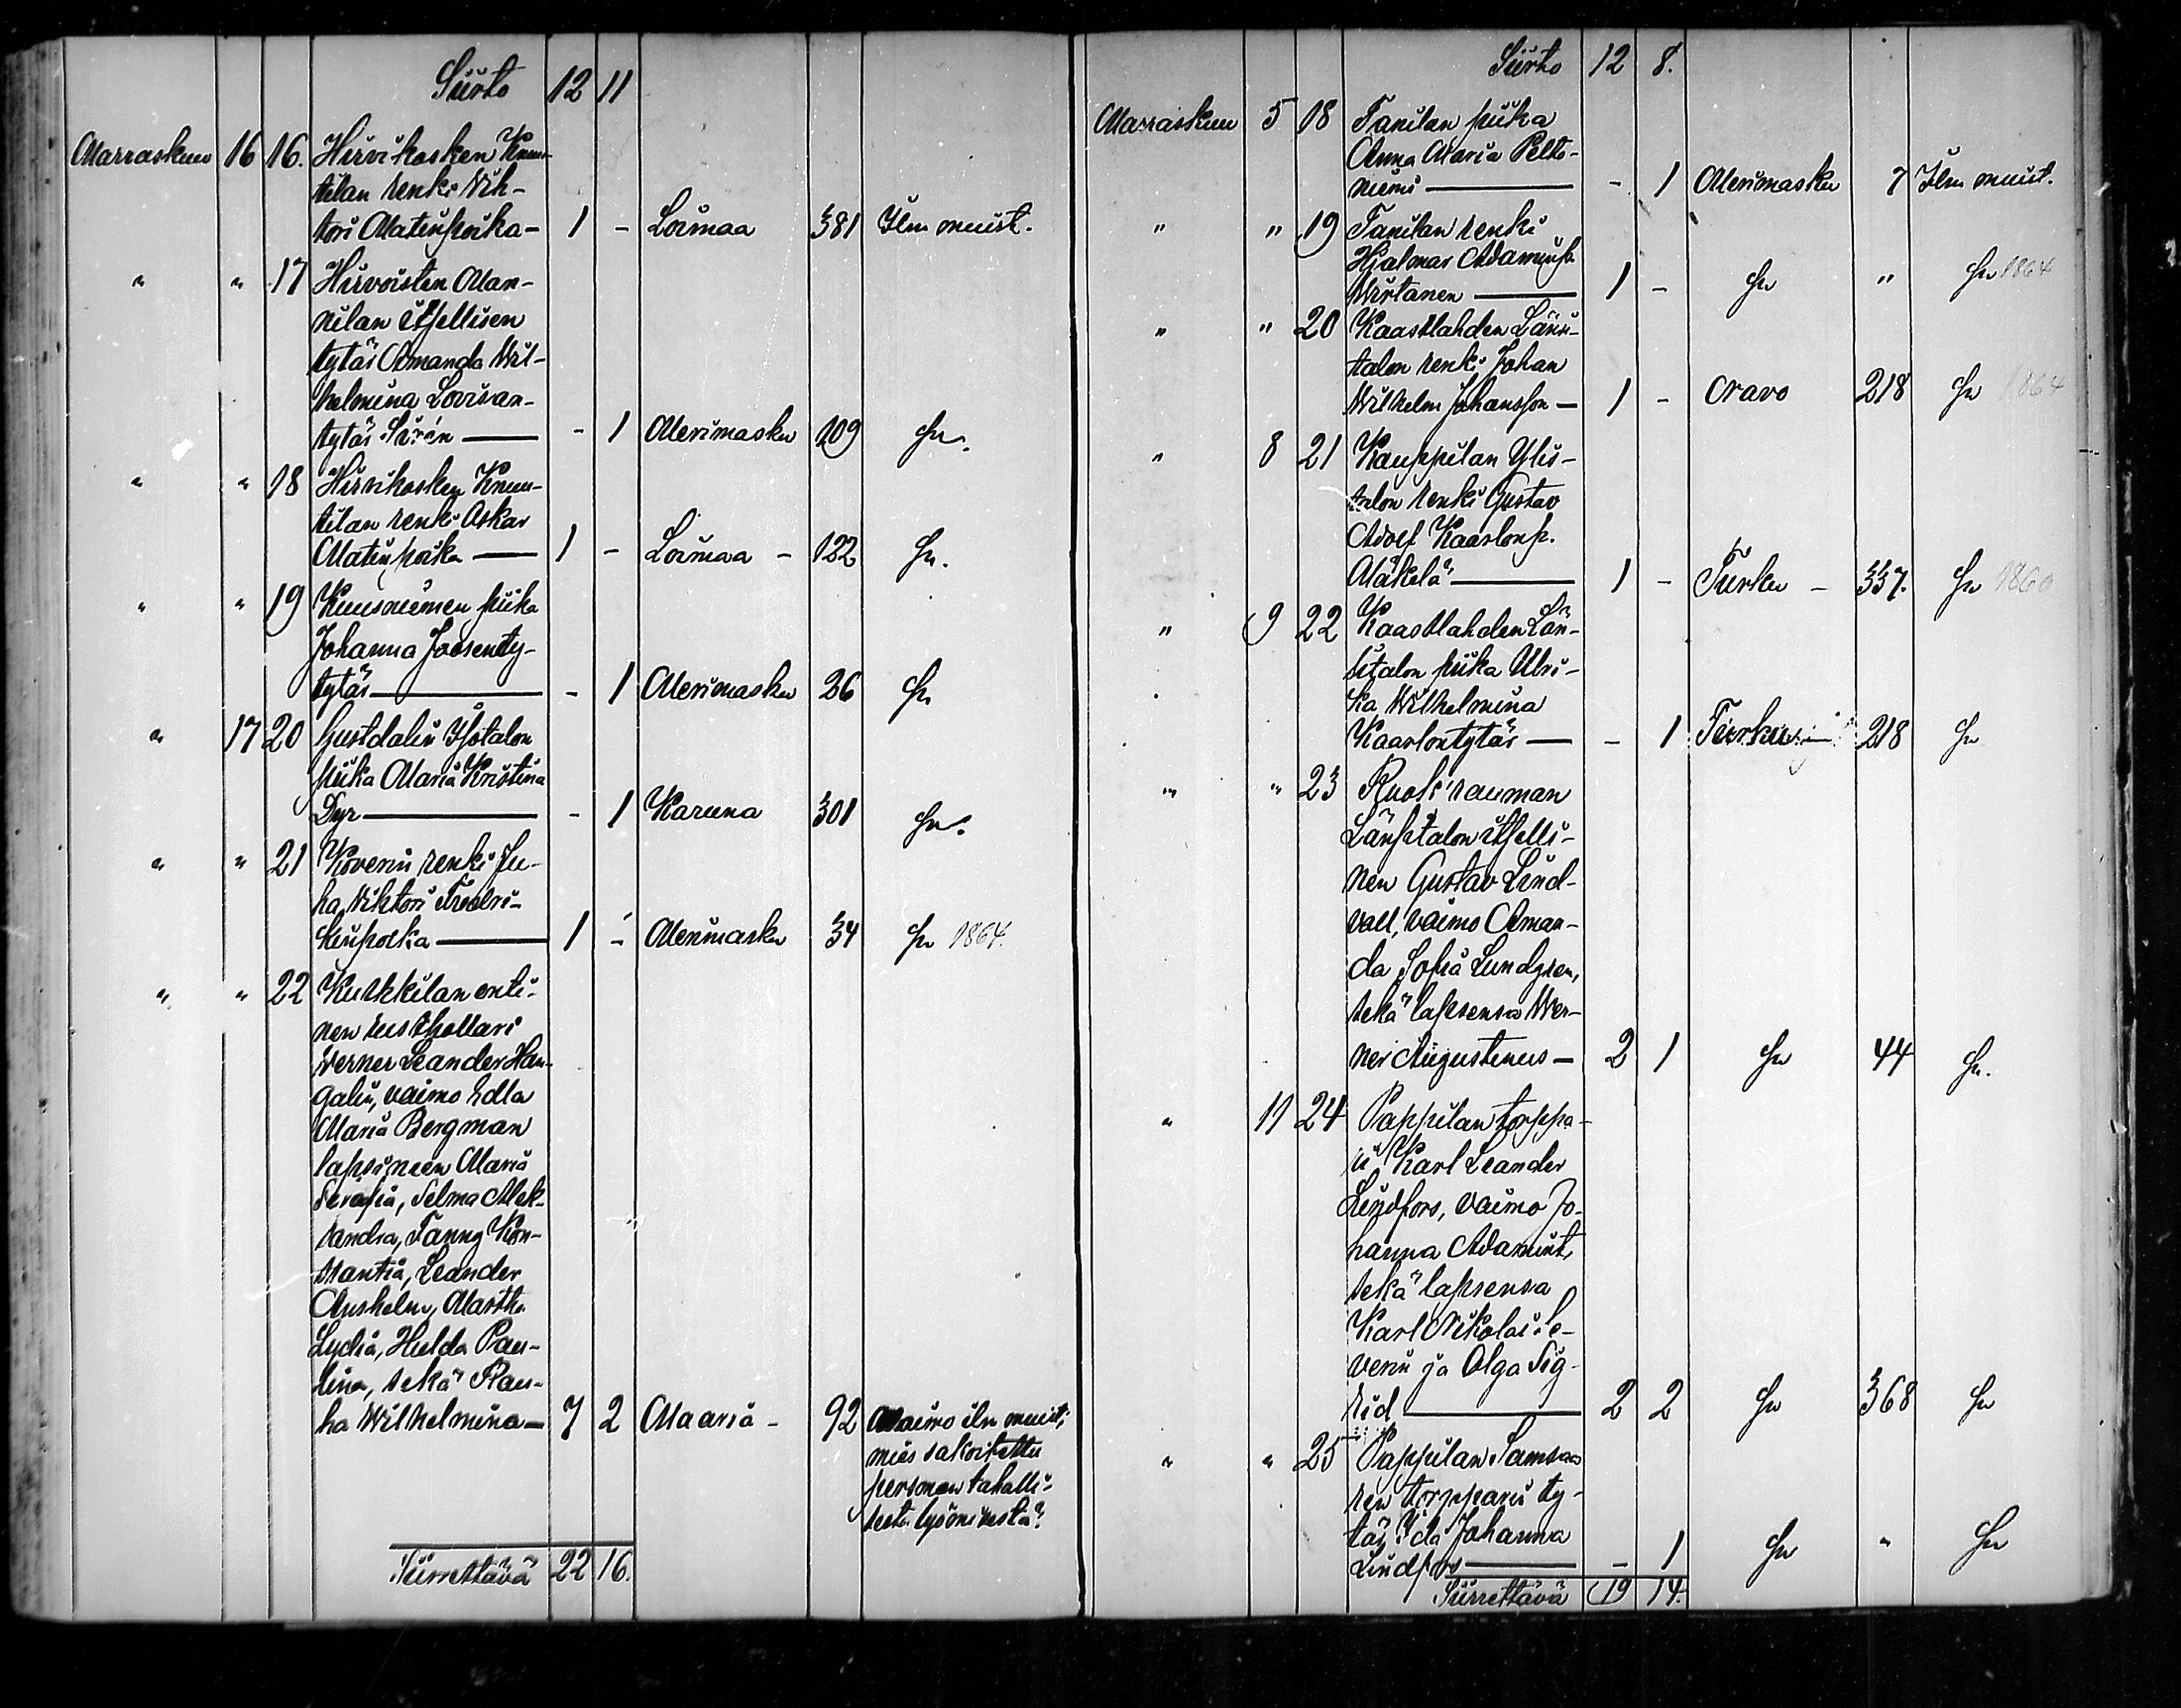 Siirto 12 11
Marraskuu 16 16. Hirvikosken Knuu-
tilan renki Wih-
tori Matinpoika - 1 - Loimaa 381 Ilm muist.
" " 17 Hirvoisten Man-
nilan itsellisen
tytär Amanda Wil-
helmina Lovisan-
tytär Sirén - 1 Merimasku 109 Sn.
" " 18 Hirvikosken Knuu-
tilan renki Oskar
Matinpoika 1 - Loimaa - 122 Sn.
" " 19 Kuusniemen piika
Johanna Joosenty-
tytär - 1 Merimasku 26 Sn
" 17 20 Gustdalin Isotalon
piika Maria Kristina
Dyr - 1 Karuna 301 Sn.
" " 21 Koverin renki Ju-
ha Viktori Fredri-
kinpoika 1 - Merimasku 34 Sn 1864.
" " 22 Kuskkilan enti-
nen rusthollari
Verner Leander Han-
galin, vaimo Edla
Maria Bergman
lapsineen Maria
Serafia, Selma Alek-
sandra, Fanny Kon-
stantia, Leander
Anshelm, Martha
Lydia, Hulda Pau-
lina, sekä Rau-
ha Wilhelmina - 7 2 Maaria - 92 Waimo ilm muist;
mies sakoitettu
personan tahalli-
sesta lyömisestä.
Siirrettävä 22 16.
Siirto 12 8.
Marraskuu 5 18 Tanilan piika
Anna Maria Pelto-
niemi - 1 Merimasku 7 Ilm muist.
" " 19 Tanilan renki
Hjalmar Adaminp.
Wirtanen 1 - Sn " Sn 1864
" " 20 Kaastlahden Länsi-
talon renki Johan
Wilhelm Johansson - 1 - Oravo 218 Sn 1864
" 8 21 Kauppilan Ylis-
talon renki Gustav
Adolf Kaarlonp.
Mäkelä 1 - Turku - 337. Sn 1860
" 9 22 Kaastlahden Län-
sitalon piika Ulri-
ka Wilhelmina
Kaarlontytär - - 1 Turku 218 Sn
" " 23 Ruokrauman
Länsitalon itselli-
nen Gustav Lind-
vall, vaimo Aman-
da Sofia Lundgren,
sekä lapsensa Wer-
ner Augustinus - 2 1 Sn 44 Sn.
" 11 24 Pappilan torppa-
ri Karl Leander
Lindfors, vaimo Jo-
hanna Adamint,
sekä lapsensa
Karl Nikolai Se-
verin ja Olga Sig-
rid 2 2 Sn 368 Sn
" " 25 Pappilan Samsaa-
ren torpparin ty-
tär Ida Johanna
Lindfors - 1 Sn " Sn
Siirrettävä 19 14.